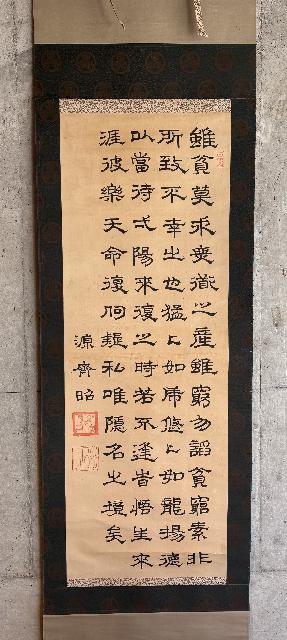 雖貧莫求喪之産雖窮勿謟貧窮素非
所致不幸之也猛々如虎悠々如龍揚徳
以當待弌陽來復之時若不逢昔悟生來
涯彼樂天命復何疑私唯隱名之境矣
源齊昭